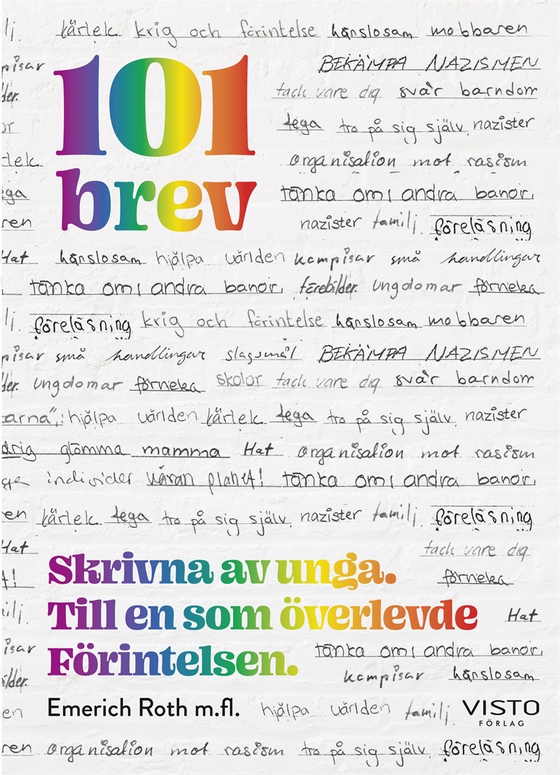 lj. kärlek krig och förintelse känslosam mobbaren
101
pisar BEKÄMPA NAZISMEN
lder. tack vare dig svår barndom
or tega tro på sig själv nazister
rlek organisation mot rasism
brev
ega tänka om i andra banor,
ren nazister familj föreläsning
Hat känslosam hjälpa världen kompisar små handlingar
tänka om i andra banor, förebilder ungdomar förneka
lj. föreläsning krig och förintelse känslosam mobbaren
pisar små handlingar slagsmål BEKÄMPA NAZISMEN
lder. ungdomar förneka skolor tack vare dig svår barndom
arna", hjälpa världen kärlek tega tro på sig själv nazister
drig glömma mamma Hat organisation mot rasism
individer våran planet! tänka om i andra banor,
en kärlek tega tro på sig själv, nazister familj föreläsning
Hat tack vare dig
Skrivna av unga.
t! förneka
Till en som överlevde
ilj. Hat
Förintelsen.
isar tänka om i andra banor,
ilder. kompisar känslosam
Emerich Roth m.fl.
en hjälpa världen familj VISTO
FÖRLAG
ren organisation mot rasism tro på sig själv, föreläsning